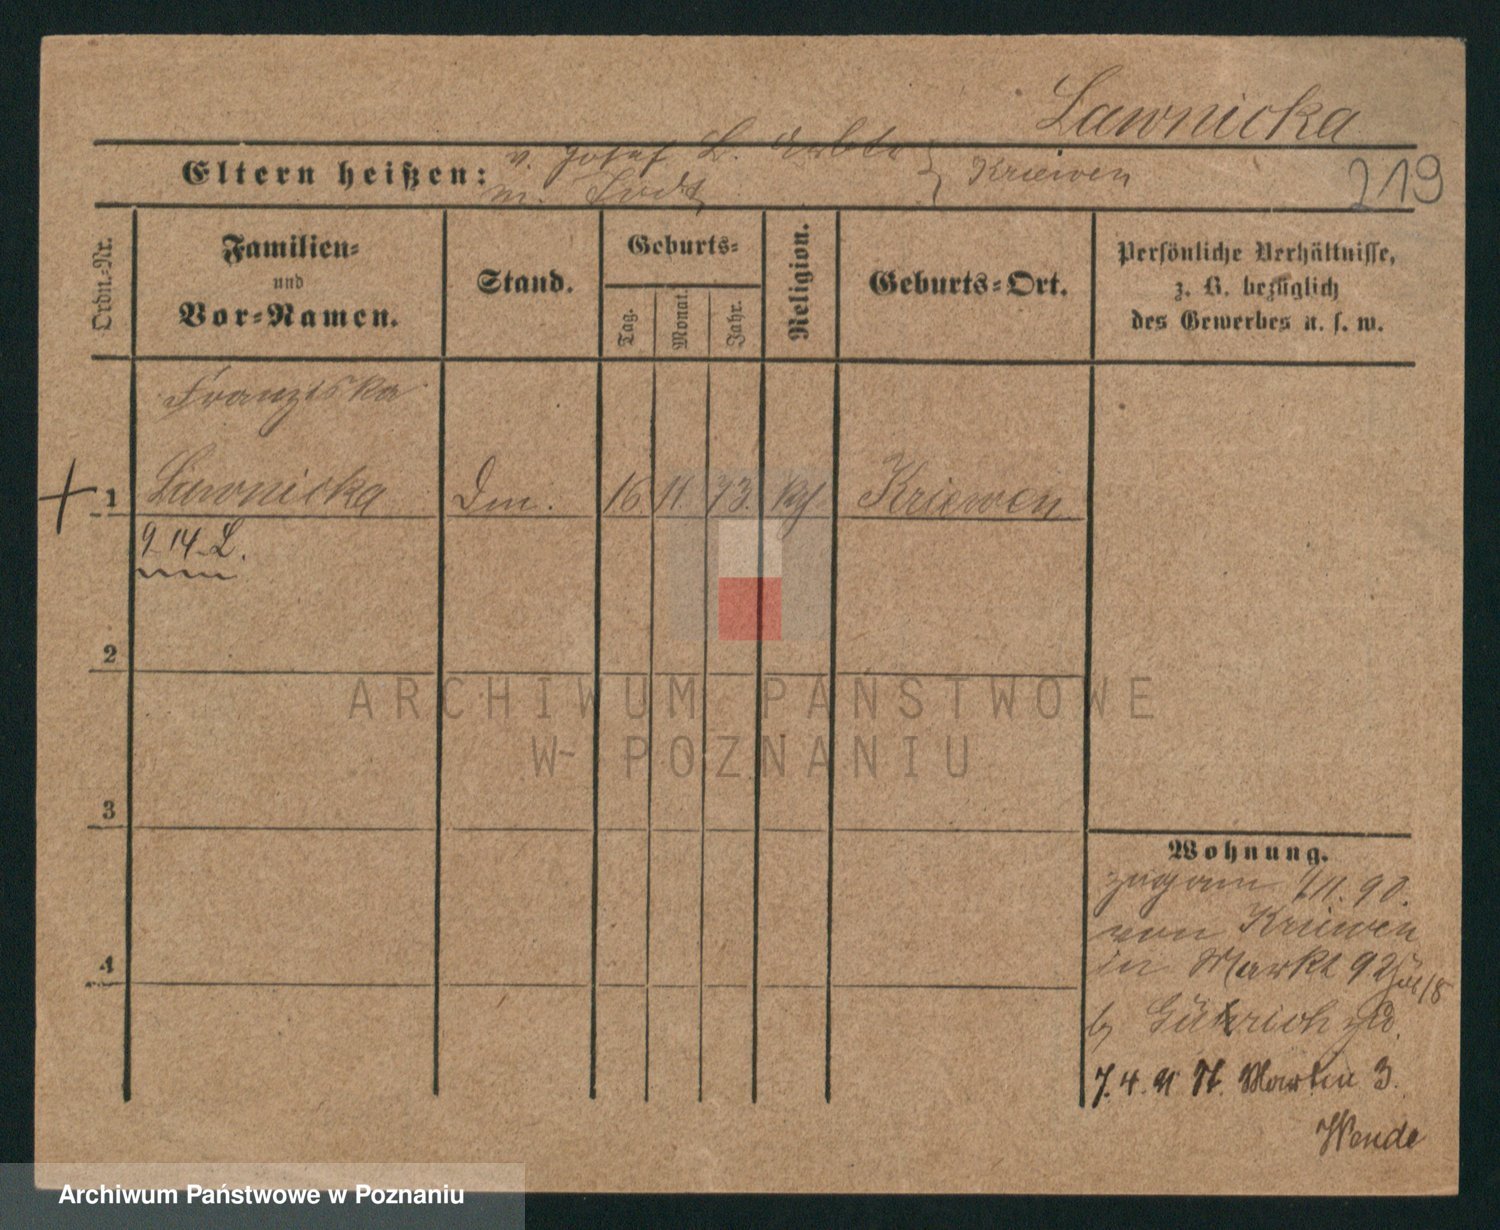 Lawnicka
219
Eltern heißen: v. Josef L.
m. } Kriewen
Ordn.-Nr.
Familien-
und
Vor-Namen.
Stand.
Geburts-
Tag.
Monat.
Jahr.
Religion.
Geburts-Ort.
Persönliche Verhältnisse,
z. B. bezüglich
des Gewerbes u. s. w.
Franziska
1 Lawnicka Dm. 16. 11. 73. kth Kriewen
9.14.L.
2
3
4
Wohnung.
1/11. 90.
von Kriewen
in Markt 92
b/
7. 4. 91 St. Martin 3.
Wende
ARCHIWUM PAŃSTWOWE
W POZNANIU
Archiwum Państwowe w Poznaniu